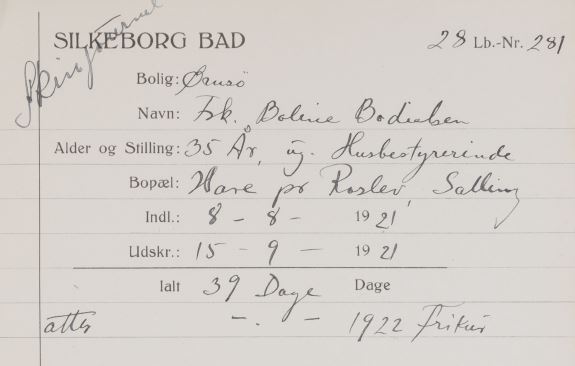 SILKEBORG BAD 28 Lb.-Nr. 281
Bolig: Ørnsö
Navn: Frk. Boline Bodielsen
Alder og Stilling: 35 År, ug. Husbestyrerinde
Bopæl: Hare pr Roslev, Salling
Indl.: 8 - 8 - 1921
Udskr.: 15 - 9 - 1921
Ialt 39 Dage Dage
atter -. - 1922 Frikur